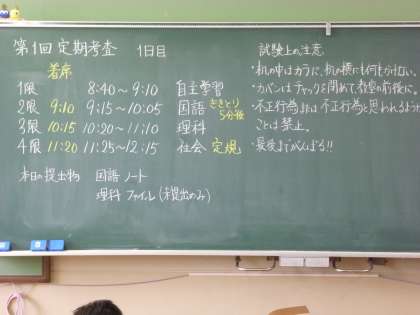 第1回定期考査 1日目
着席
1限 8:40～9:10 自主学習
2限 9:10 9:15～10:05 国語 ききとり5分後
3限 10:15 10:20～11:10 理科
4限 11:20 11:25～12:15 社会 定規
本日の提出物 国語 ノート
理科 ファイル(未提出のみ)
試験上の注意
・机の中はカラに、机の横にも何もかけない。
・カバンはチャックを閉めて、教室の前後に。
・不正行為または不正行為と思われるような
ことは禁止。
・最後までがんばる!!